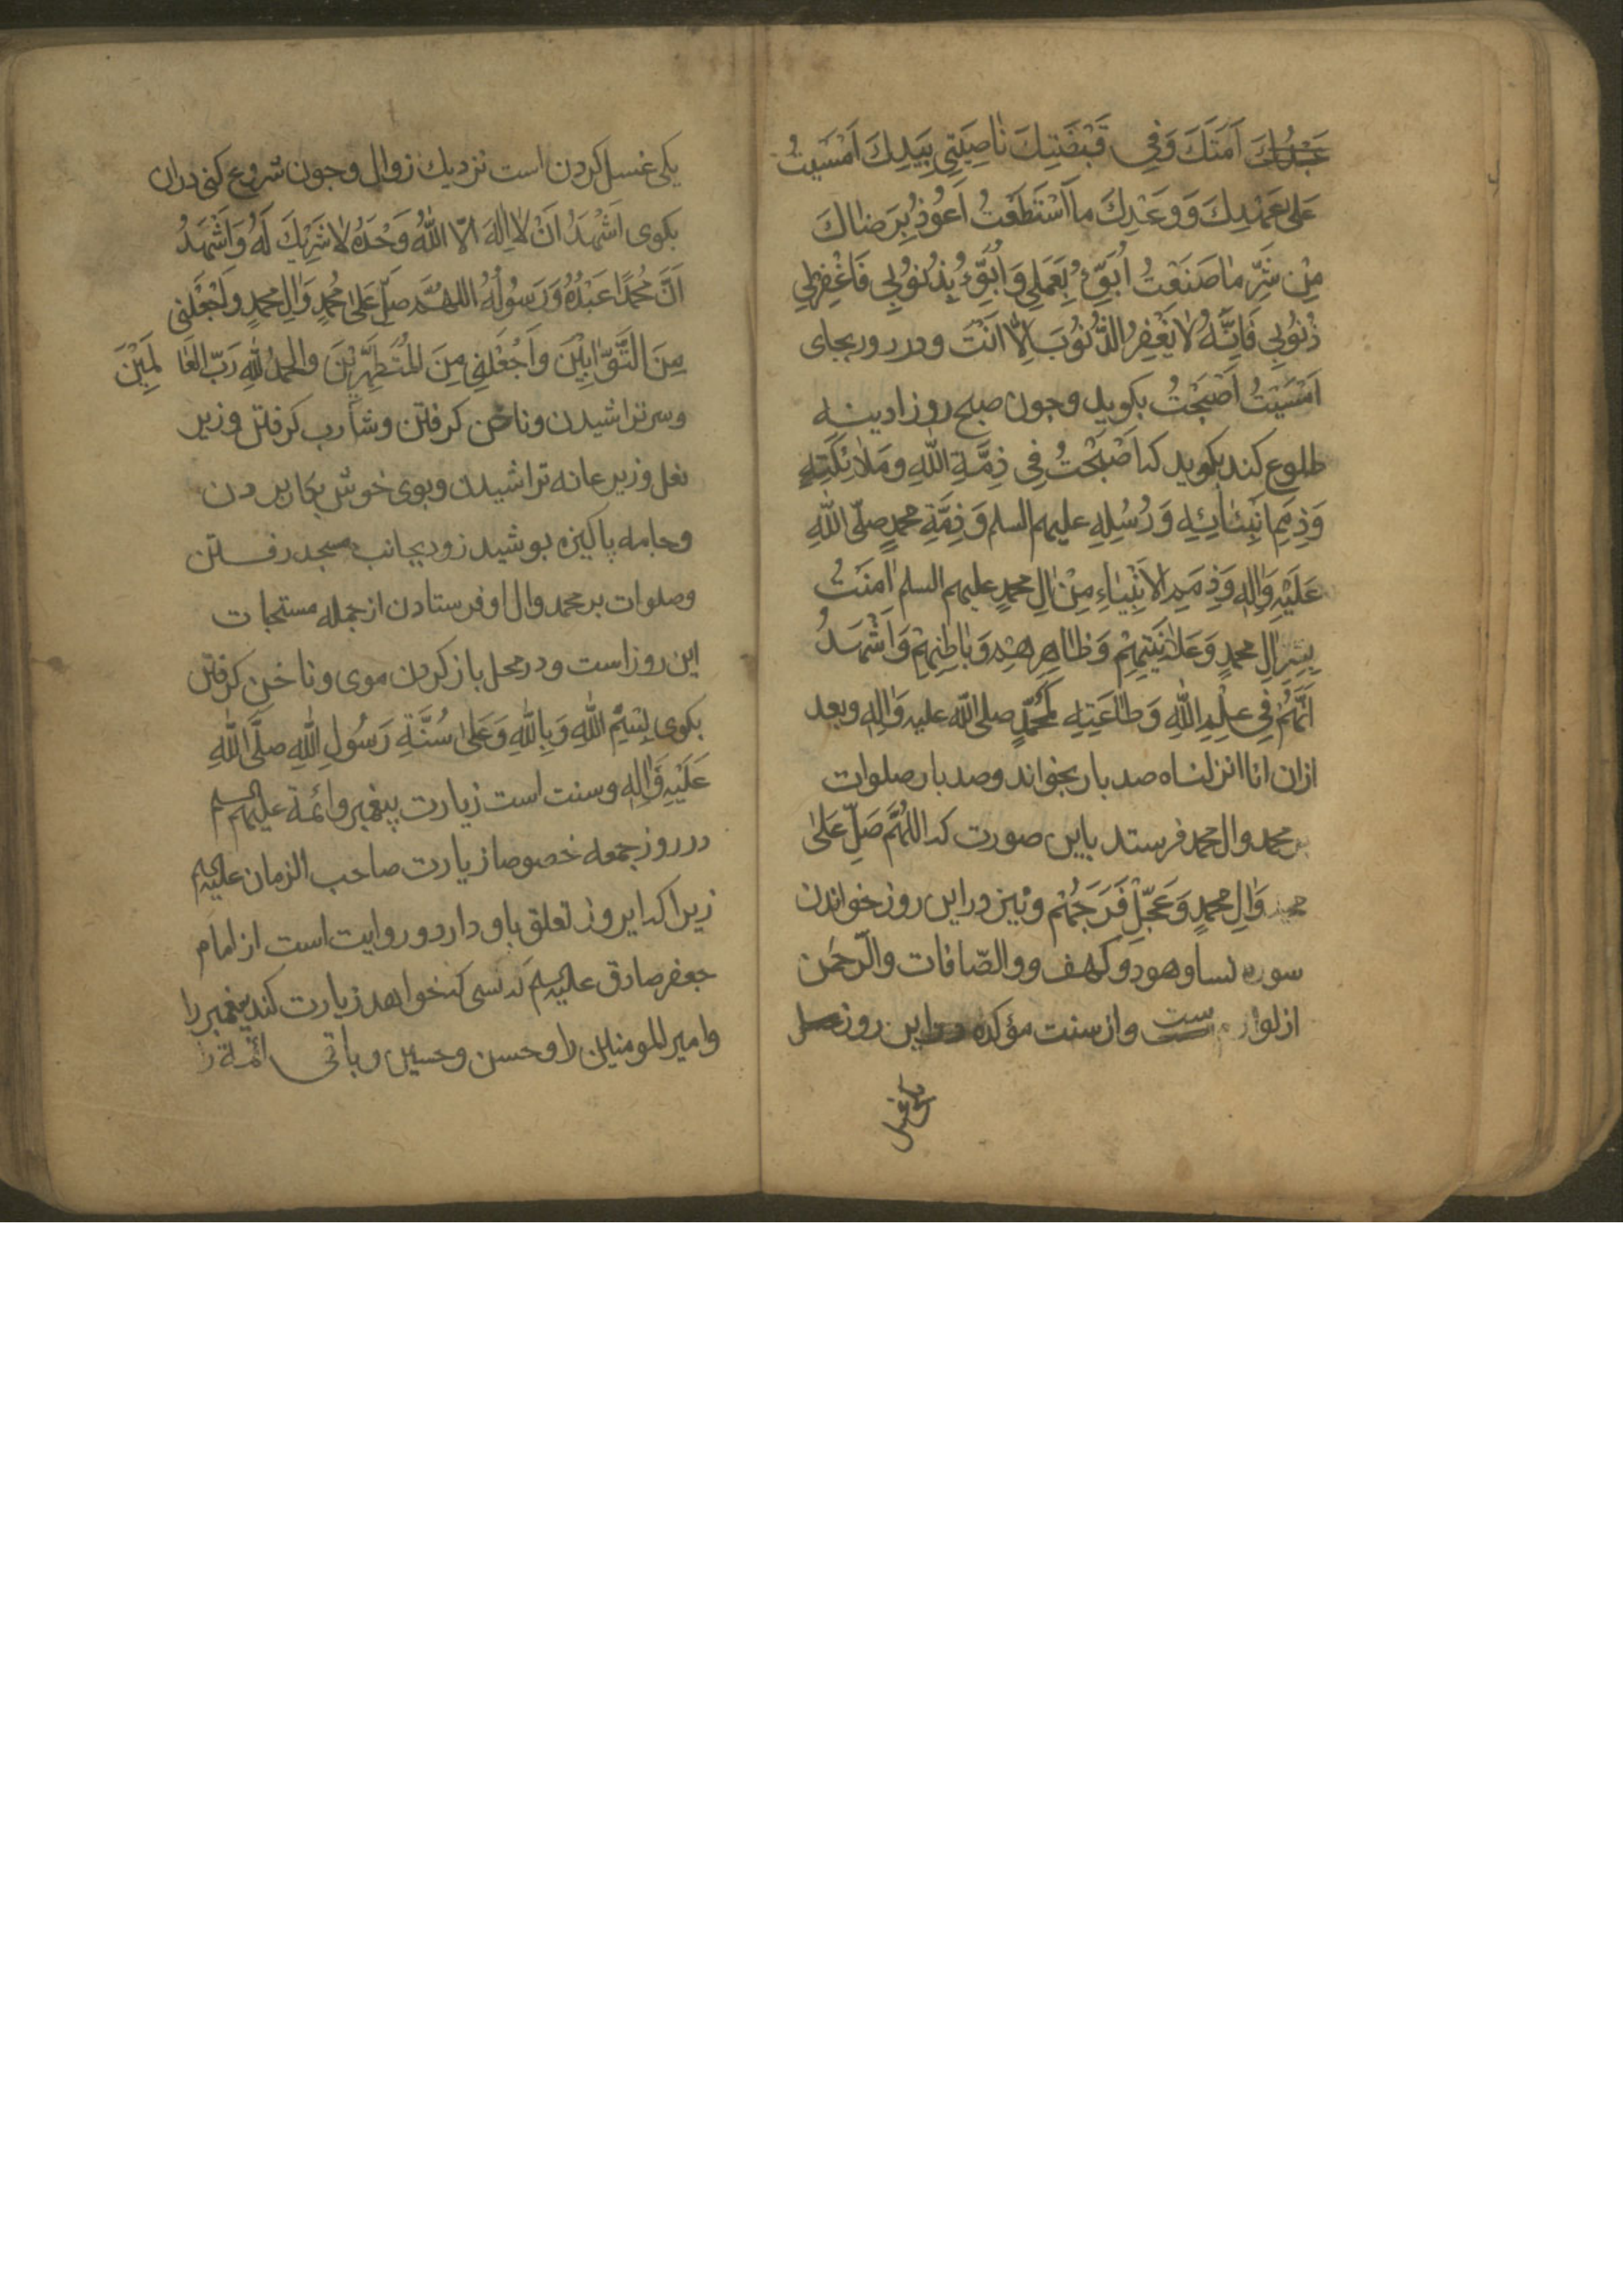 عَبْدُكَ اَمَتِكَ وَفِي قَبْضَتِكَ نٰاصِيَتِي بِيَدِكَ اَمْسَيْتُ
عَلىٰ عَهْدِكَ وَوَعْدِكَ مااَسْتَطَعْتُ اَعُوذُ بِرَضٰاكَ
مِنْ شَرِّ مٰاصَنَعْتُ اَبُوءُ بِعَمَلِي وَاَبُوءُ بِذُنُوبِي فَاغْفِرْلِي
ذُنُوبِي فَاِنَّهُ لاٰيَغْفِرُ الذُّنُوبَ اِلّاٰ اَنْتَ ودر روز بجاى
اَمْسَيْتُ اَصْبَحْتُ بكويد وجون صبح روز ادينه
طلوع كند بكويد كه اَصْبَحْتُ فِي ذِمَّةِ اللّٰهِ ومَلاٰئِكَتِهِ
وَذِمَمِ اَنْبِيٰائِهِ وَرُسُلِهِ عليهم السلم وَذِمَّةِ محمدٍ صلّى اللّٰهُ
عَلَيْهِ وَاٰلِهِ وَذِمَمِ الاَنْبِيٰاءِ مِنْ اٰلِ محمدٍ عليهم السلم اٰمَنْتُ
بِسِرِّ اٰلِ محمدٍ وَعَلاٰنِيَتِهِمْ وَظٰاهِرِهِمْ وَبٰاطِنِهِمْ وَاَشْهَدُ
اَنَّهُمْ فِي عِلْمِ اللّٰهِ وَطٰاعَتِهِ كَمُحَمَّدٍ صلى اللّٰه عليه وَاٰلِهِ وبعد
ازان انا انزلناه صد بار بخواند وصد بار صلوات
بر محمد وال محمد فرستد باين صورت كه اَللّٰهُمَّ صَلِّ عَلىٰ
محمد وَاٰلِ محمدٍ وَعَجِّلْ فَرَجَهُمْ ونيز دراين روز خواندن
سوره نسا وهود وكهف ووالصّافات والرّحمن
از لوازم ست وازسنت مؤكده دراين روز
يكى غسل
يكى غسل كردن است نزديك زوال وجون شروع كنى دران
بكوى اَشْهَدُ اَنْ لاٰ اِلٰهَ اِلاّ اللّٰهُ وَحْدَهُ لاٰ شَرِيكَ لَهُ وَاَشْهَدُ
اَنَّ مُحَمَّدًا عَبْدُهُ وَرَسُولُهُ اللهم صَلِّ عَلىٰ مُحمدٍ وَاٰلِ محمدٍ واجْعَلْنِي
مِنَ التَّوّٰابِيْنَ واَجْعَلْنِي مِنَ الْمُتَطَهِّرِيْنَ والحمدُ لِلّٰهِ رَبِّ العٰا لَمِيْنَ
وسرتراشيدن وناخن كرفتن وشارب كرفتن وزير
بغل وزير عانه تراشيدن وبوى خوش بكار بردن
وجامه پاكيزه بوشيد زود بجانب مسجد رفتن
وصلوات بر محمد وال او فرستادن ازجمله مستحبات
اين روز است ودر محل باز كردن موى وناخن كرفتن
بكوى بِسْمِ اللّٰهِ وَبِاللّٰهِ وَعَلىٰ سُنَّةِ رَسُولِ اللّٰهِ صلَّى اللّٰهُ
عَلَيْهِ وَاٰلِهِ وسنت است زيارت پيغمبر وائمة عليهم السلم
در روز جمعه خصوصا زيارت صاحب الزمان عليه السلم
زيرا كه اين روز تعلق باو دارد وروايت است از امام
جعفر صادق عليه السلم كه كسى كه خواهد زيارت كند پيغمبر را
وامير المومنين را وحسن وحسين وباقى ائمة را